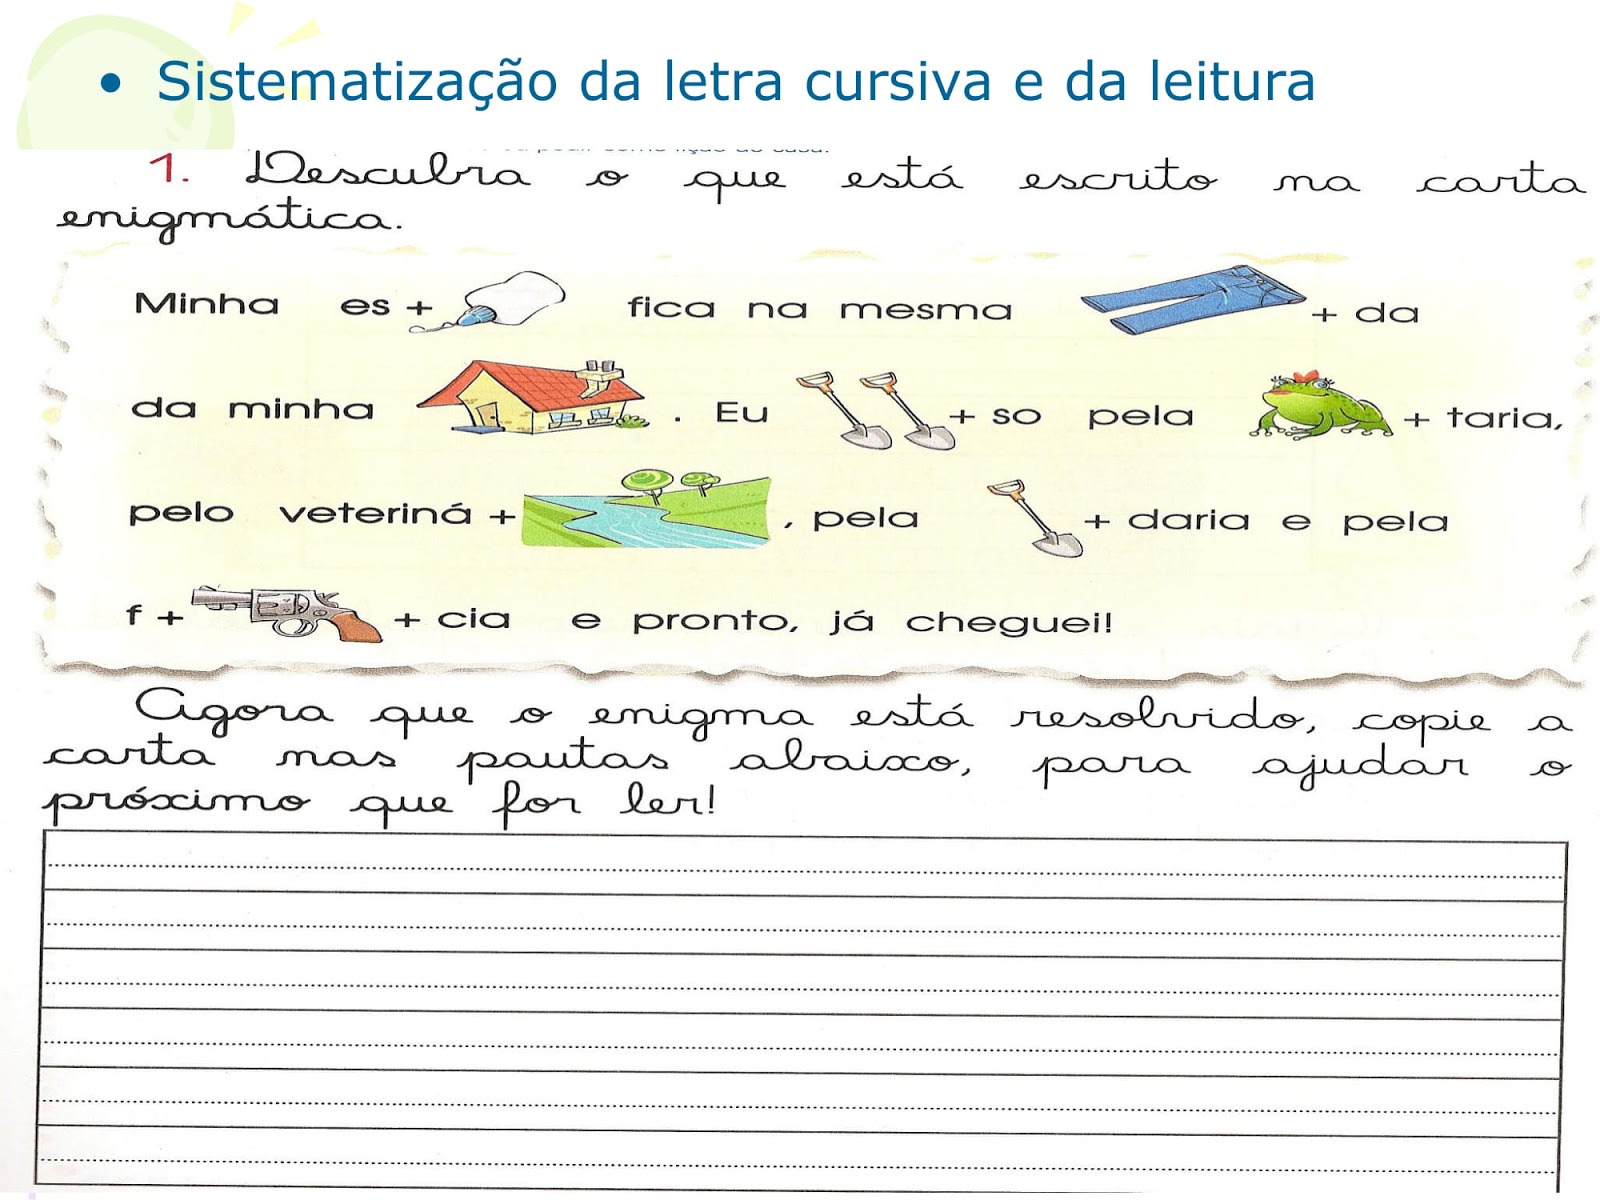 • Sistematização da letra cursiva e da leitura
1. Descubra o que está escrito na carta
enigmática.
Minha es + fica na mesma + da
da minha . Eu + so pela + taria,
pelo veteriná + , pela + daria e pela
f + + cia e pronto, já cheguei!
Agora que o enigma está resolvido, copie a
carta nas pautas abaixo, para ajudar o
próximo que for ler!